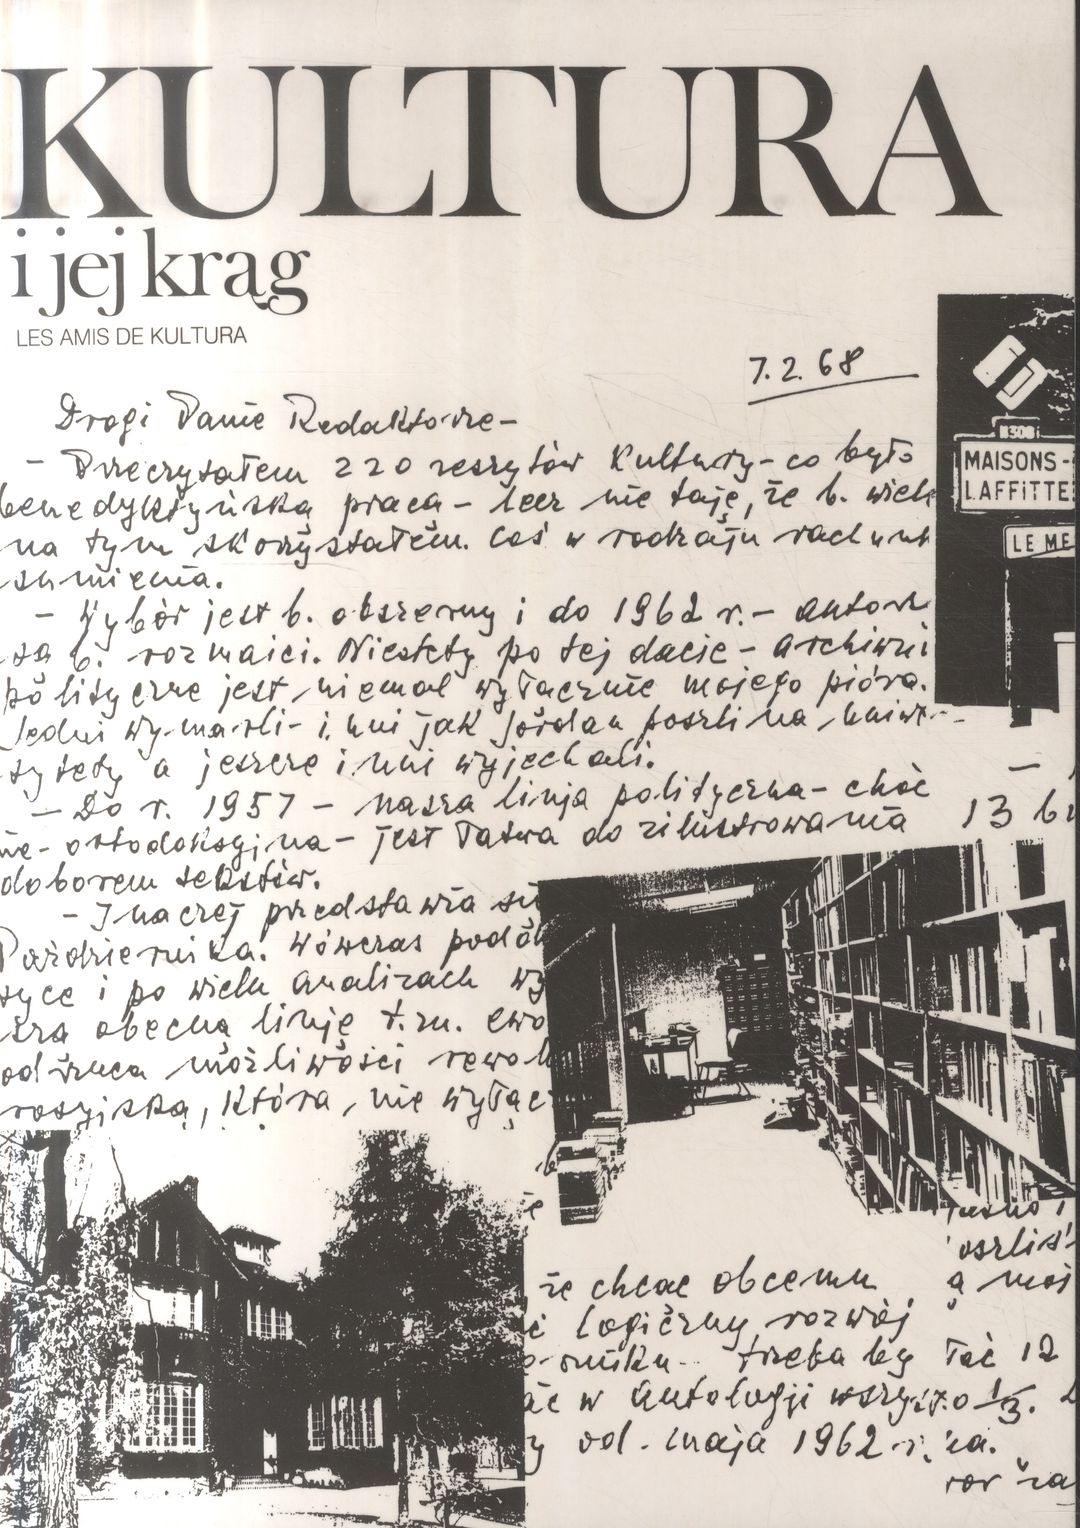 KULTURA
i jej krąg
LES AMIS DE KULTURA
7.2.68
N308
MAISONS-
LAFFITTE
LE ME
Drogi Panie Redaktorze-
- Przeczytałem 220 zeszytów Kultury - co było
benedyktyńską pracą - lecz nie taję, że b. wiele
na tym skorzystałem. Coś w rodzaju rachunk
sumienia.
- Wybór jest b. obszerny i do 1962 r. - autorz
są b. rozmaici. Niestety po tej dacie - archiwum
polityczne jest niemal wyłącznie mojego pióra.
Jedni wymarli - inni jak Jordan poszli na uniwer-
sytety a jeszcze inni wyjechali.
- Do r. 1957 - nasza linja polityczna - choć
nie-ortodoksyjna - jest łatwa do zilustrowania
doborem tekstów.
- Inaczej przedstawia się
Października. Wówczas podów
życe i po wielu analizach wy
szą obecną linję t.zn. ewo
odrzuca możliwości rewol
rosyjską, która, nie wyłącz
że chcąc obcemu
ć logiczny rozwój
o-runku - trzeba by
ać w antologji wszy
y od maja 1962 r.
13 br
ą mój
łać 12
1/3.
za.